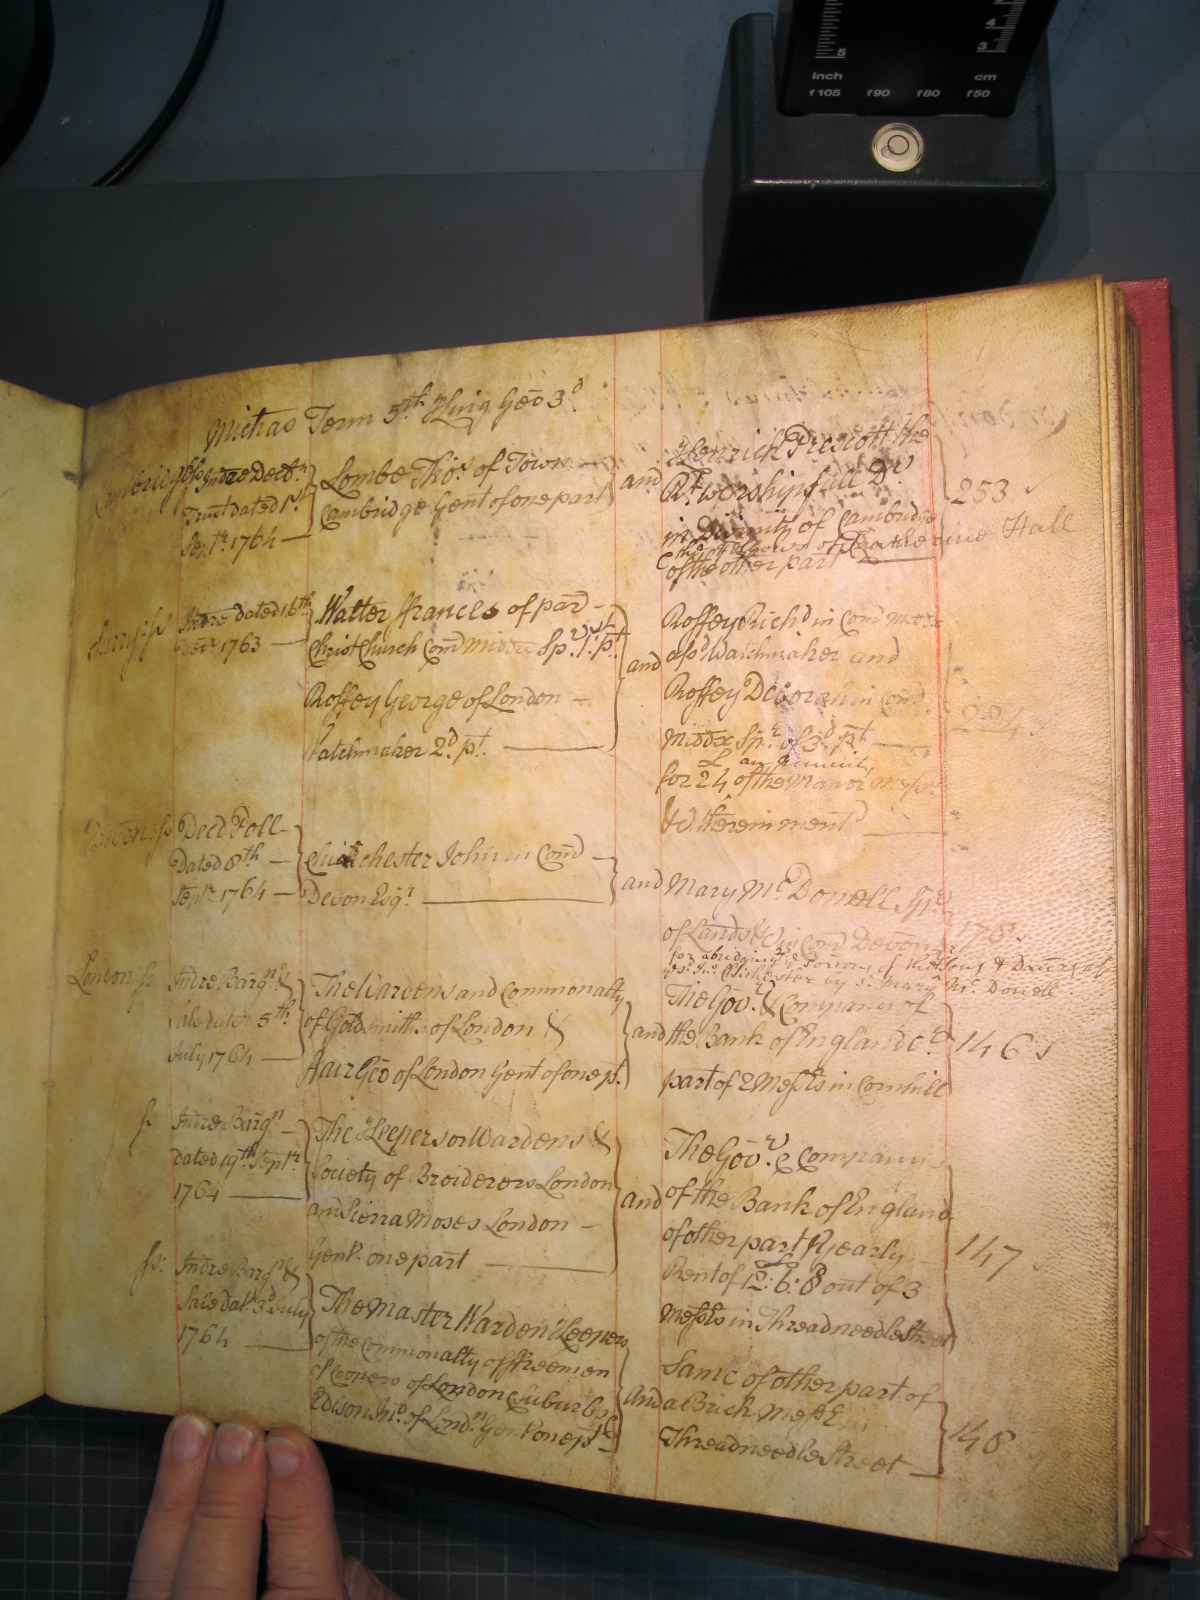 5
4
3
inch
cm
f105 f90 f80 f50
Michas Term 5th King Geo 3d
Cambridgess Indre Decl.n
Trust dated 1st
Sept.r 1764
Lombe Tho.s of Town
Cambridge Gent of one part
and
Henrich Prescott the
Rt worshipfull Dr
in Divinity of Cambridge
the fellows of Katherine Hall
of the other part
253
Surry ss
Indre dated 16th
1763
Walter Frances of par
Christ Church Com Middx Sp.r 1st pt
Roffey George of London
Watchmaker 2d pt.
and
Roffey Rich.d in Com Middx
afs.d Watchmaker and
Roffey Deborah in Com
Middx Sp.r of 3d pt
for £ 24 an annuity of the Manor Mess
&c. therein ment.d
Devon ss
Deed Poll
Dated 8th
Sept.r 1764
Chichester John in Com
Devon Esq.r
and
Mary Mc Donell Sp.r
of Lands &c in Com Devon
178
for abridging
by s.d Mary Mc. Donell
London ss
Indre Barg.n &
Sale dated 5th
July 1764
The Wardens and Commonalty
of Goldsmiths of London &
Hair Geo of London Gent of one pt.
and
The Gov.r & Companie of
the Bank of England of o.r
part of 2 Messts in Cornhill
146
ss
Indre Barg.n
dated 19th Sept.r
1764
The Keepers or Wardens &
Society of Broiderers London
and Serra Moses London
Gent. one part
and
The Gov.r & Companie
of the Bank of England
of other part Yearly
Rent of £12: 6: 8 out of 3
Messts in Threadneedle Street
147
ss.
Indre Barg.n &
Sale dat. 3d July
1764
The Master Warden Keepers
of the Commonalty of Freemen
of Coopers of London & Suburbs
Edison Jn.o of Lond.n Gent one pt
and
Same of other part of
a Brick Messt in
Threadneedle Street
148